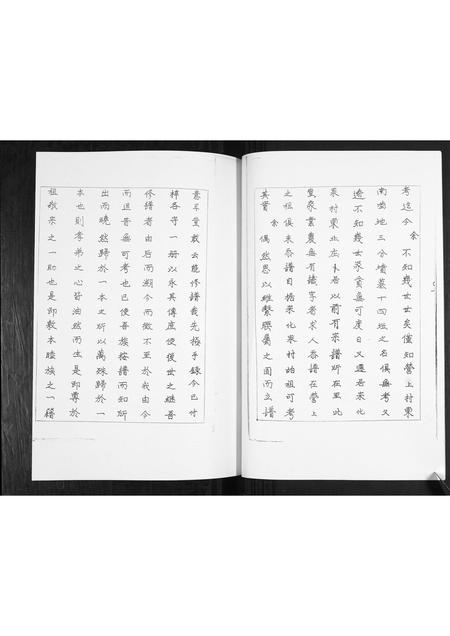 考迄今余不知幾世矣僅知營上村東
南崗地三分墳墓十四塚之名俱無考又
遼不知幾世衆貧無可度日又遷若來化
衆村東北庄卜居以前有宗譜所在至此
皇衆業農無有識字者求人叅譜在營上
之祖俱未叅譜自楊來化衆村始祖可考
其實余偶然思以維繫聯屬之固而立譜
意不堂敢云能修譜哉先極手錄今已付
梓各守一册以永其傳庶使後世之繼吾
修譜者由后而溯今而微不至於我由今
而追昔無可考也已使吾族按譜而知所
出而曉然歸於一本之所以萬殊歸於一
本也則孝弟之心皆油然而生是即尊於
祖敬宗之一助也是即敦本睦族之一籍